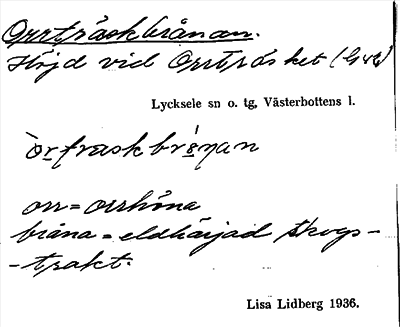 Orrträskbrånan.
Höjd vid Orrträsket
Lycksele sn o. tg, Västerbottens l.
orr = orrhöna
bråna = eldhärjad skogs-
-trakt.
Lisa Lidberg 1936.